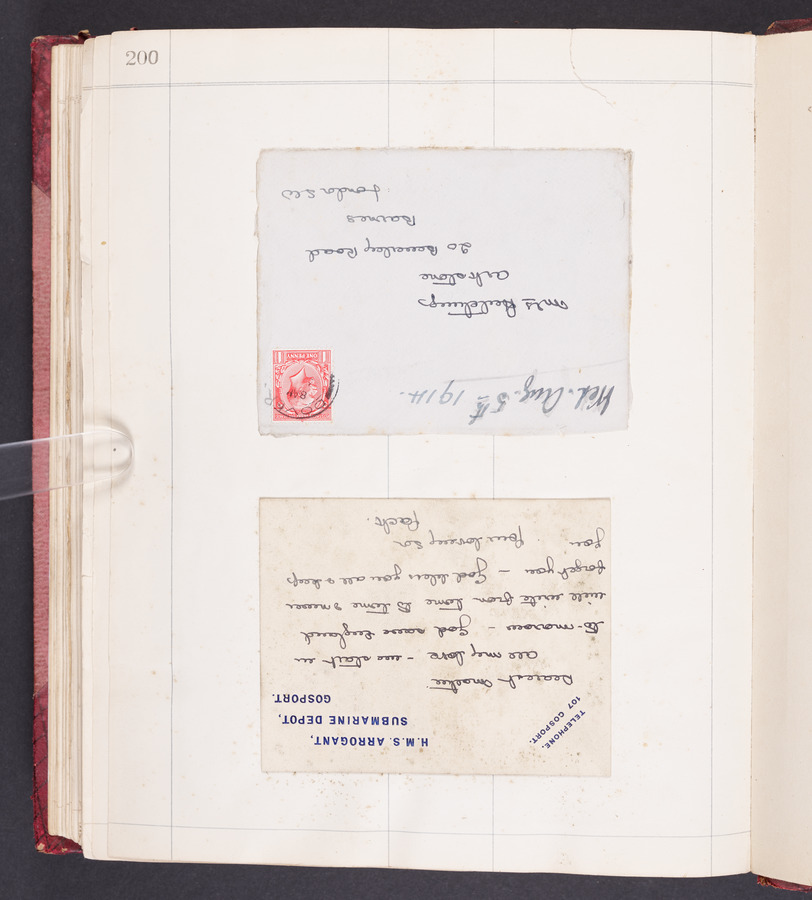 200
Wed. Aug. 5th 1914.
ONE PENNY
DOVER
Mrs Hutchings
Arkstone
20 Beverley Road
Barnes
London SW
TELEPHONE,
107 GOSPORT.
H.M.S. ARROGANT,
SUBMARINE DEPOT,
GOSPORT.
Dearest
all my love - we start in
to-morrow - God save England
will write from time to time & never
forget you - God bless you all & keep
you. Your loving son
Jack.